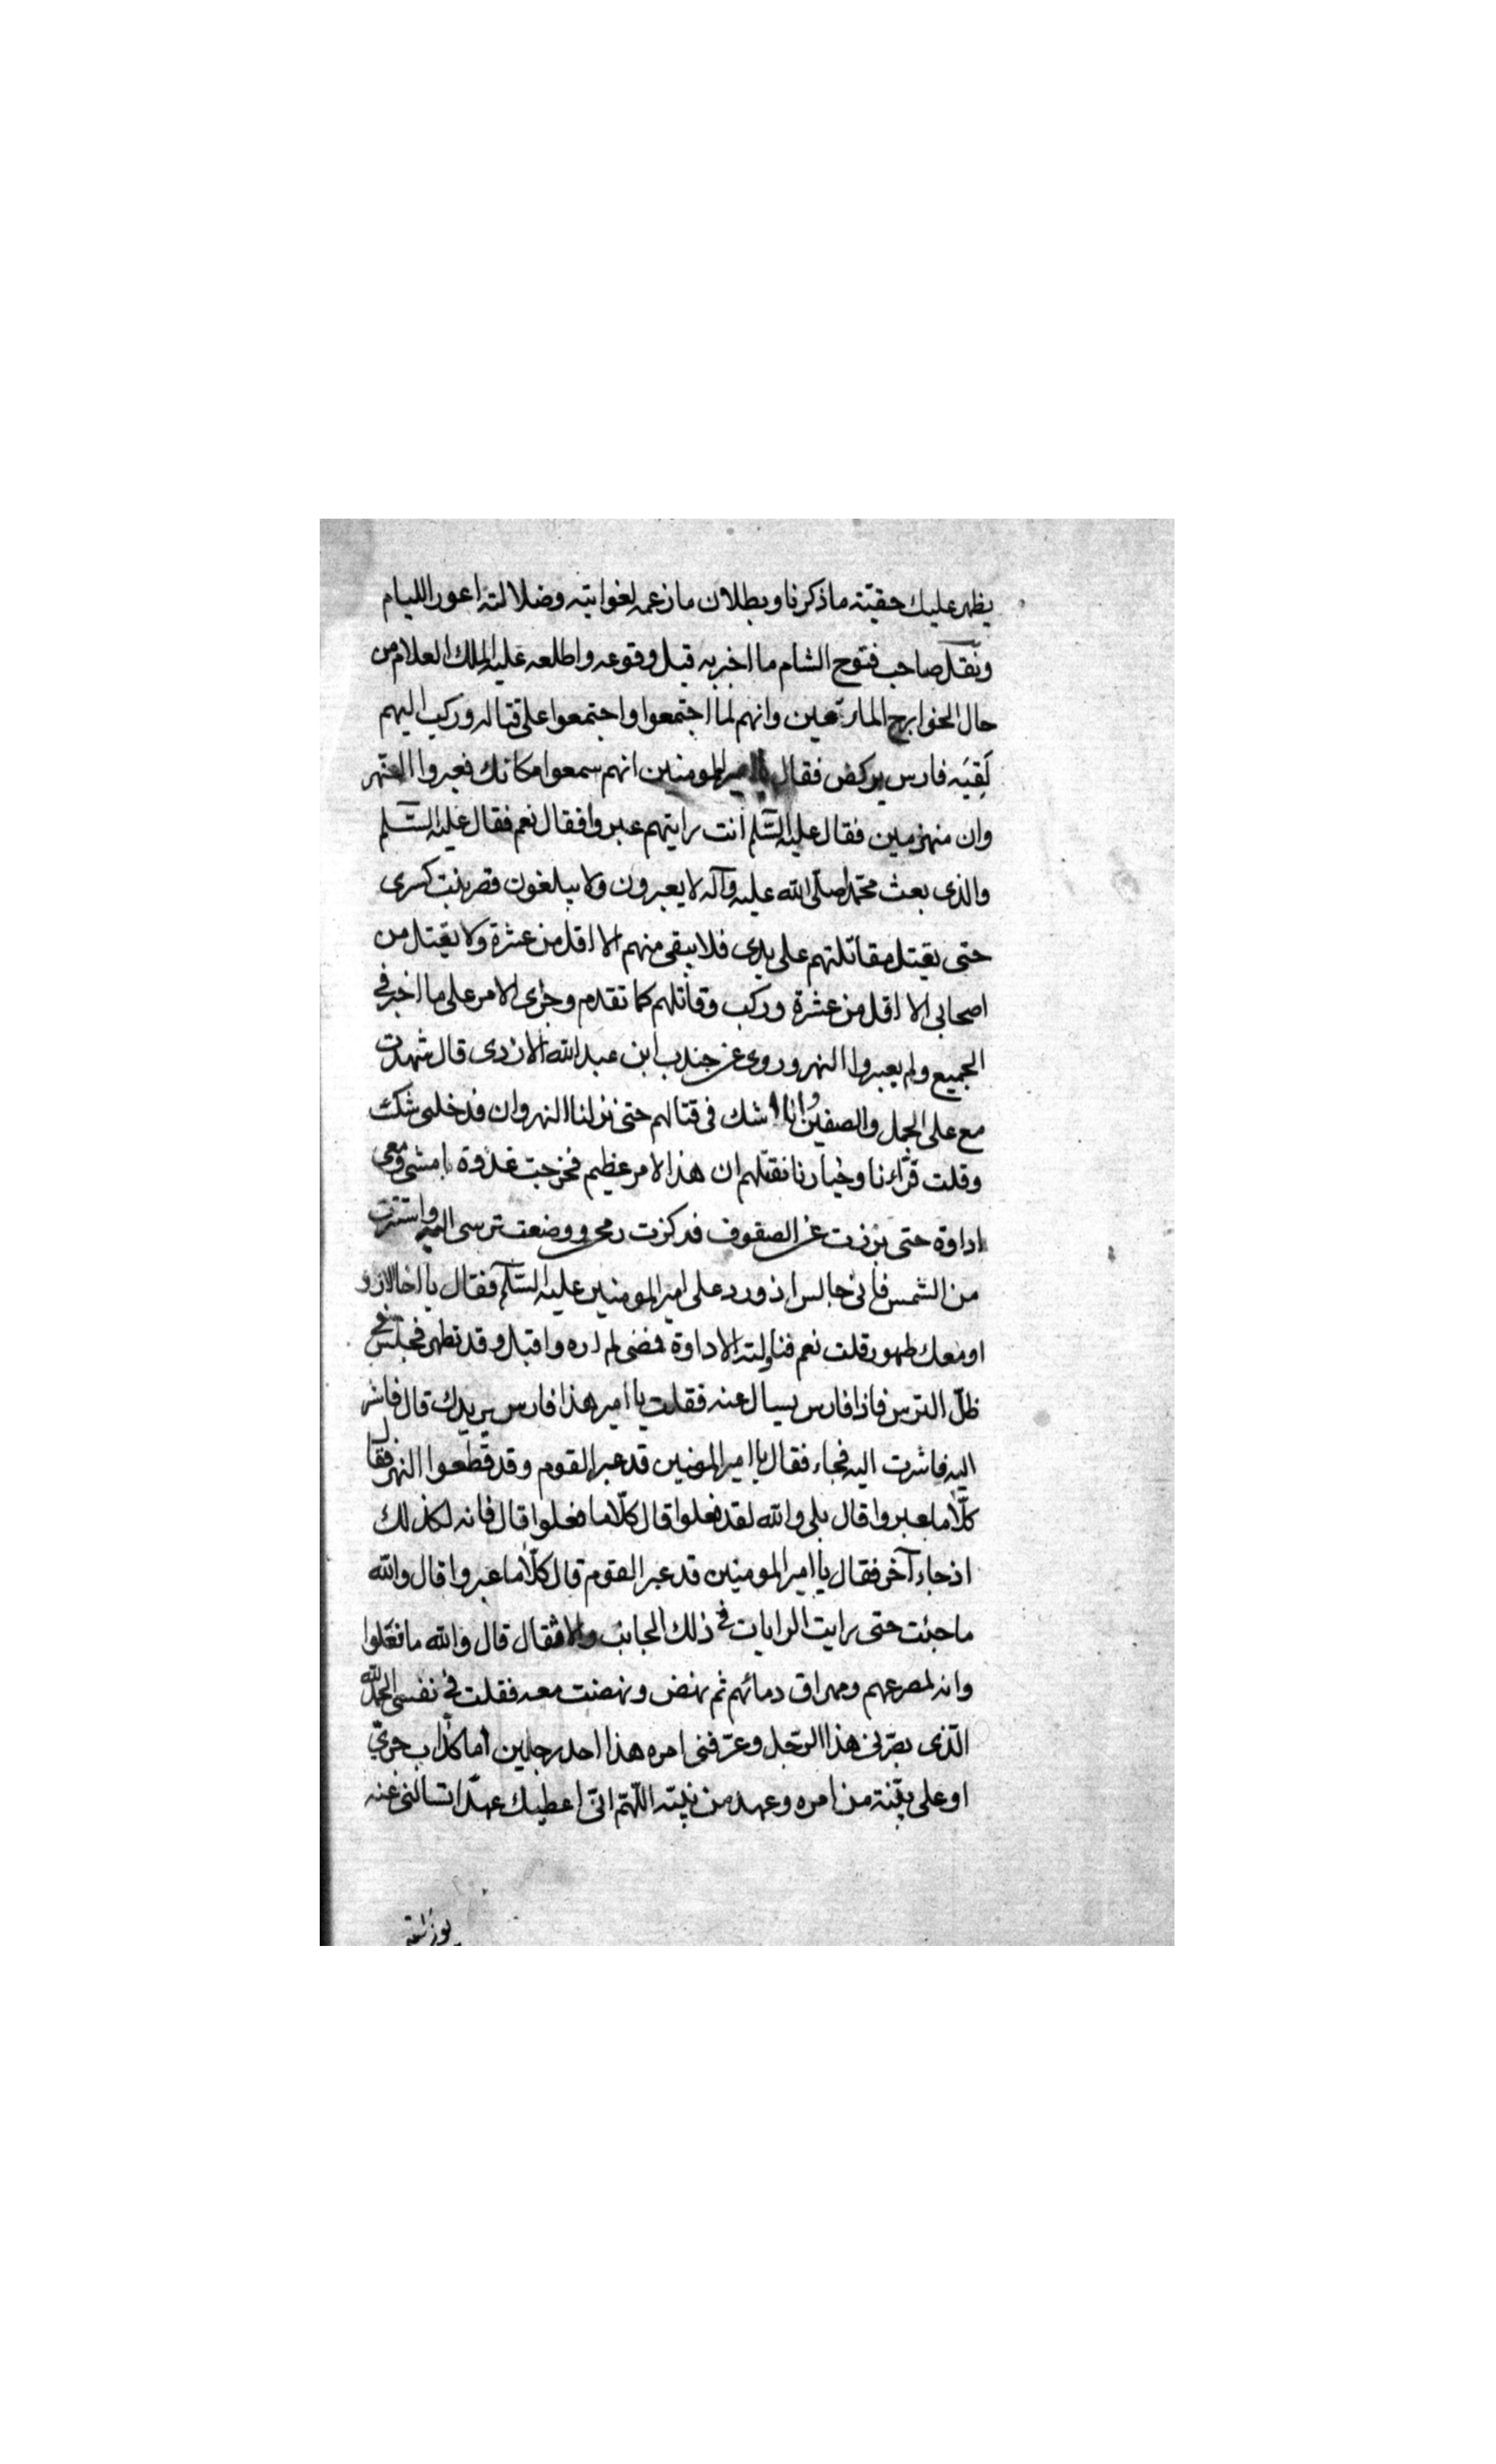 يظهر عليك حقيّة ما ذكرنا وبطلان ما زعمه لغوايته وضلالته اعور الليام
ونقل صاحب فتوح الشام ما اخبر به قبل وقوعه واطلعه عليه الملك العلام من
حال الخوارج المارقعين وانهم لما اجتمعوا واجتمعوا على قتاله وركب اليهم
لَقِيَه فارس يركض فقال يا امير المومنين انهم سمعوا مكانك فعبروا النهر
وان منهزمين فقال عليه السّلم انت رايتهم عبروا فقال نعم فقال عليه السّلم
والذى بعث محمّدا صلّى الله عليه وآله لا يعبرون ولا يبلغون قصر بنت كسرى
حتى يقتل مقاتلتهم على يدى فلا يبقى منهم الا اقل من عشرة ولا يقتل من
اصحابى الا اقل من عشرة وركب وقاتلهم كما تقدم وجرى الامر على ما اخبر فى
الجميع ولم يعبروا النهر وروى عن جندب ابن عبد الله الازدى قال شهدت
مع على الجمل والصفين وانا لا اشك فى قتالهم حتى نزلنا النهروان فدخلنى شك
وقلت قرّاءنا وخيارنا نقتلهم ان هذا الامر عظيم فخرجت غدوة امشى ومعى
اداوة حتى برزت عن الصفوف فركزت رمحى ووضعت ترسى اليه واستترت
من الشمس فانى جالس اذ ورد على امير المومنين عليه السّلم فقال يا اخا الازد
او معك طهور قلت نعم فناولته الاداوة فمضى لم اره واقبل وقد تطهر فجلس فى
ظلّ الترس فاذا فارس يسال عنه فقلت يا امير هذا فارس يريدك قال فاشر
اليه فاشرت اليه فجاء فقال يا امير المومنين قد عبر القوم وقد قطعوا النهر فقال
كلّا ما عبروا قال بلى والله لقد فعلوا قال كلّا ما فعلوا قال فانه لكذلك
اذ جاء آخر فقال يا امير المومنين قد عبر القوم قال كلّا ما عبروا قال والله
ما جئت حتى رايت الرايات فى ذلك الجانب والاثقال قال والله ما فعلوا
وانه لمصرعهم ومهراق دمائهم ثم نهض ونهضت معه فقلت فى نفسى الحمد لله
الّذى بصّرنى هذا الرّجل وعرّفنى امره هذا احد رجلين اما كذّاب جرىّ
او على بيّنة من امره وعهد من نبيّه اللّهمّ انّى اعطيك عهدا تسالنى عنه